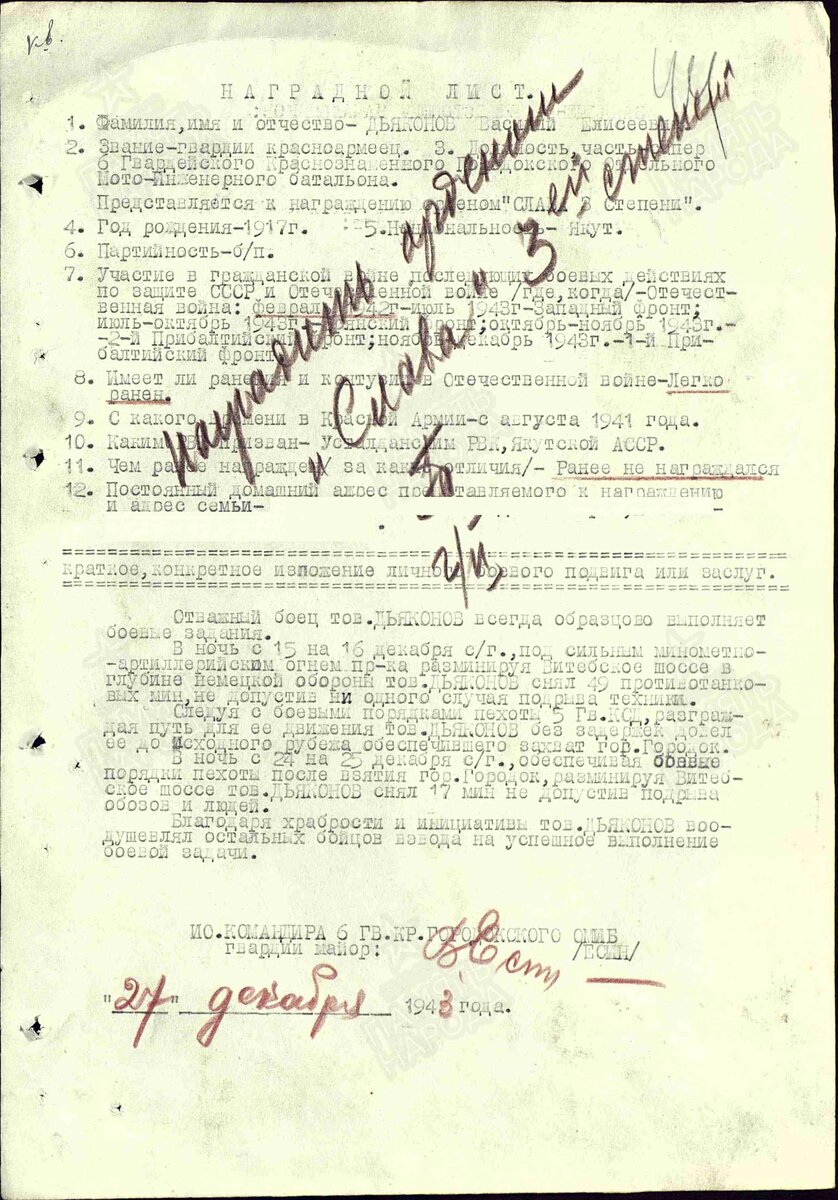 кв.
НАГРАДНОЙ ЛИСТ.
1. Фамилия,имя и отчество- ДЬЯКОНОВ Василий Елисеевич
2. Звание-гвардии красноармеец. 3. Должность,часть-сапер
6 Гвардейского Краснознаменного Городокского Отдельного
Мото-Инженерного батальона.
Представляется к награждению орденом"СЛАВА 3 степени".
4. Год рождения-1917г. 5.Национальность- Якут.
6. Партийность-б/п.
7. Участие в гражданской войне последующих боевых действиях
по защите СССР и Отечественной войне /где,когда/-Отечест-
венная война: февраль 1942г-июль 1943г-Западный фронт;
июль-октябрь 1943г. Брянский фронт;октябрь-ноябрь 1943г.-
-2-й Прибалтийский фронт;ноябрь-декабрь 1943г.-1-й При-
балтийский фронт
8. Имеет ли ранения и контузии в Отечественной войне-Легко
ранен.
9. С какого времени в Красной Армии-с августа 1941 года.
10. Каким РВК призван- Усталданским РВК,Якутской АССР.
11. Чем ранее награжден за какие отличия/- Ранее не награждался
12. Постоянный домашний адрес представляемого к награждению
и адрес семьи-
Наградить орденом
"Слава" 3ей степени
краткое,конкретное изложение личного боевого подвига или заслуг.
Отважный боец тов.ДЬЯКОНОВ всегда образцово выполняет
боевые задания.
В ночь с 15 на 16 декабря с/г.,под сильным минометно-
-артиллерийским огнем пр-ка разминируя Витебское шоссе в
глубине немецкой обороны тов.ДЬЯКОНОВ снял 49 противотанко-
вых мин,не допустив ни одного случая подрыва техники.
Следуя с боевыми порядками пехоты 5 Гв.КСД,разграж-
дая путь для ее движения тов.ДЬЯКОНОВ без задержек довел
ее до исходного рубежа обеспечившего захват гор.Городок.
В ночь с 24 на 25 декабря с/г.,обеспечивая боевые
порядки пехоты после взятия гор.Городок,разминируя Витеб-
ское шоссе тов.ДЬЯКОНОВ снял 17 мин не допустив подрыва
обозов и людей.
Благодаря храбрости и инициативы тов.ДЬЯКОНОВ воо-
душевлял остальных бойцов взвода на успешное выполнение
боевой задачи.
ИО.КОМАНДИРА 6 ГВ.КР.ГОРОДОКСКОГО ОМИБ
гвардии майор: /ЕСИН/
"27" декабря 1943 года.